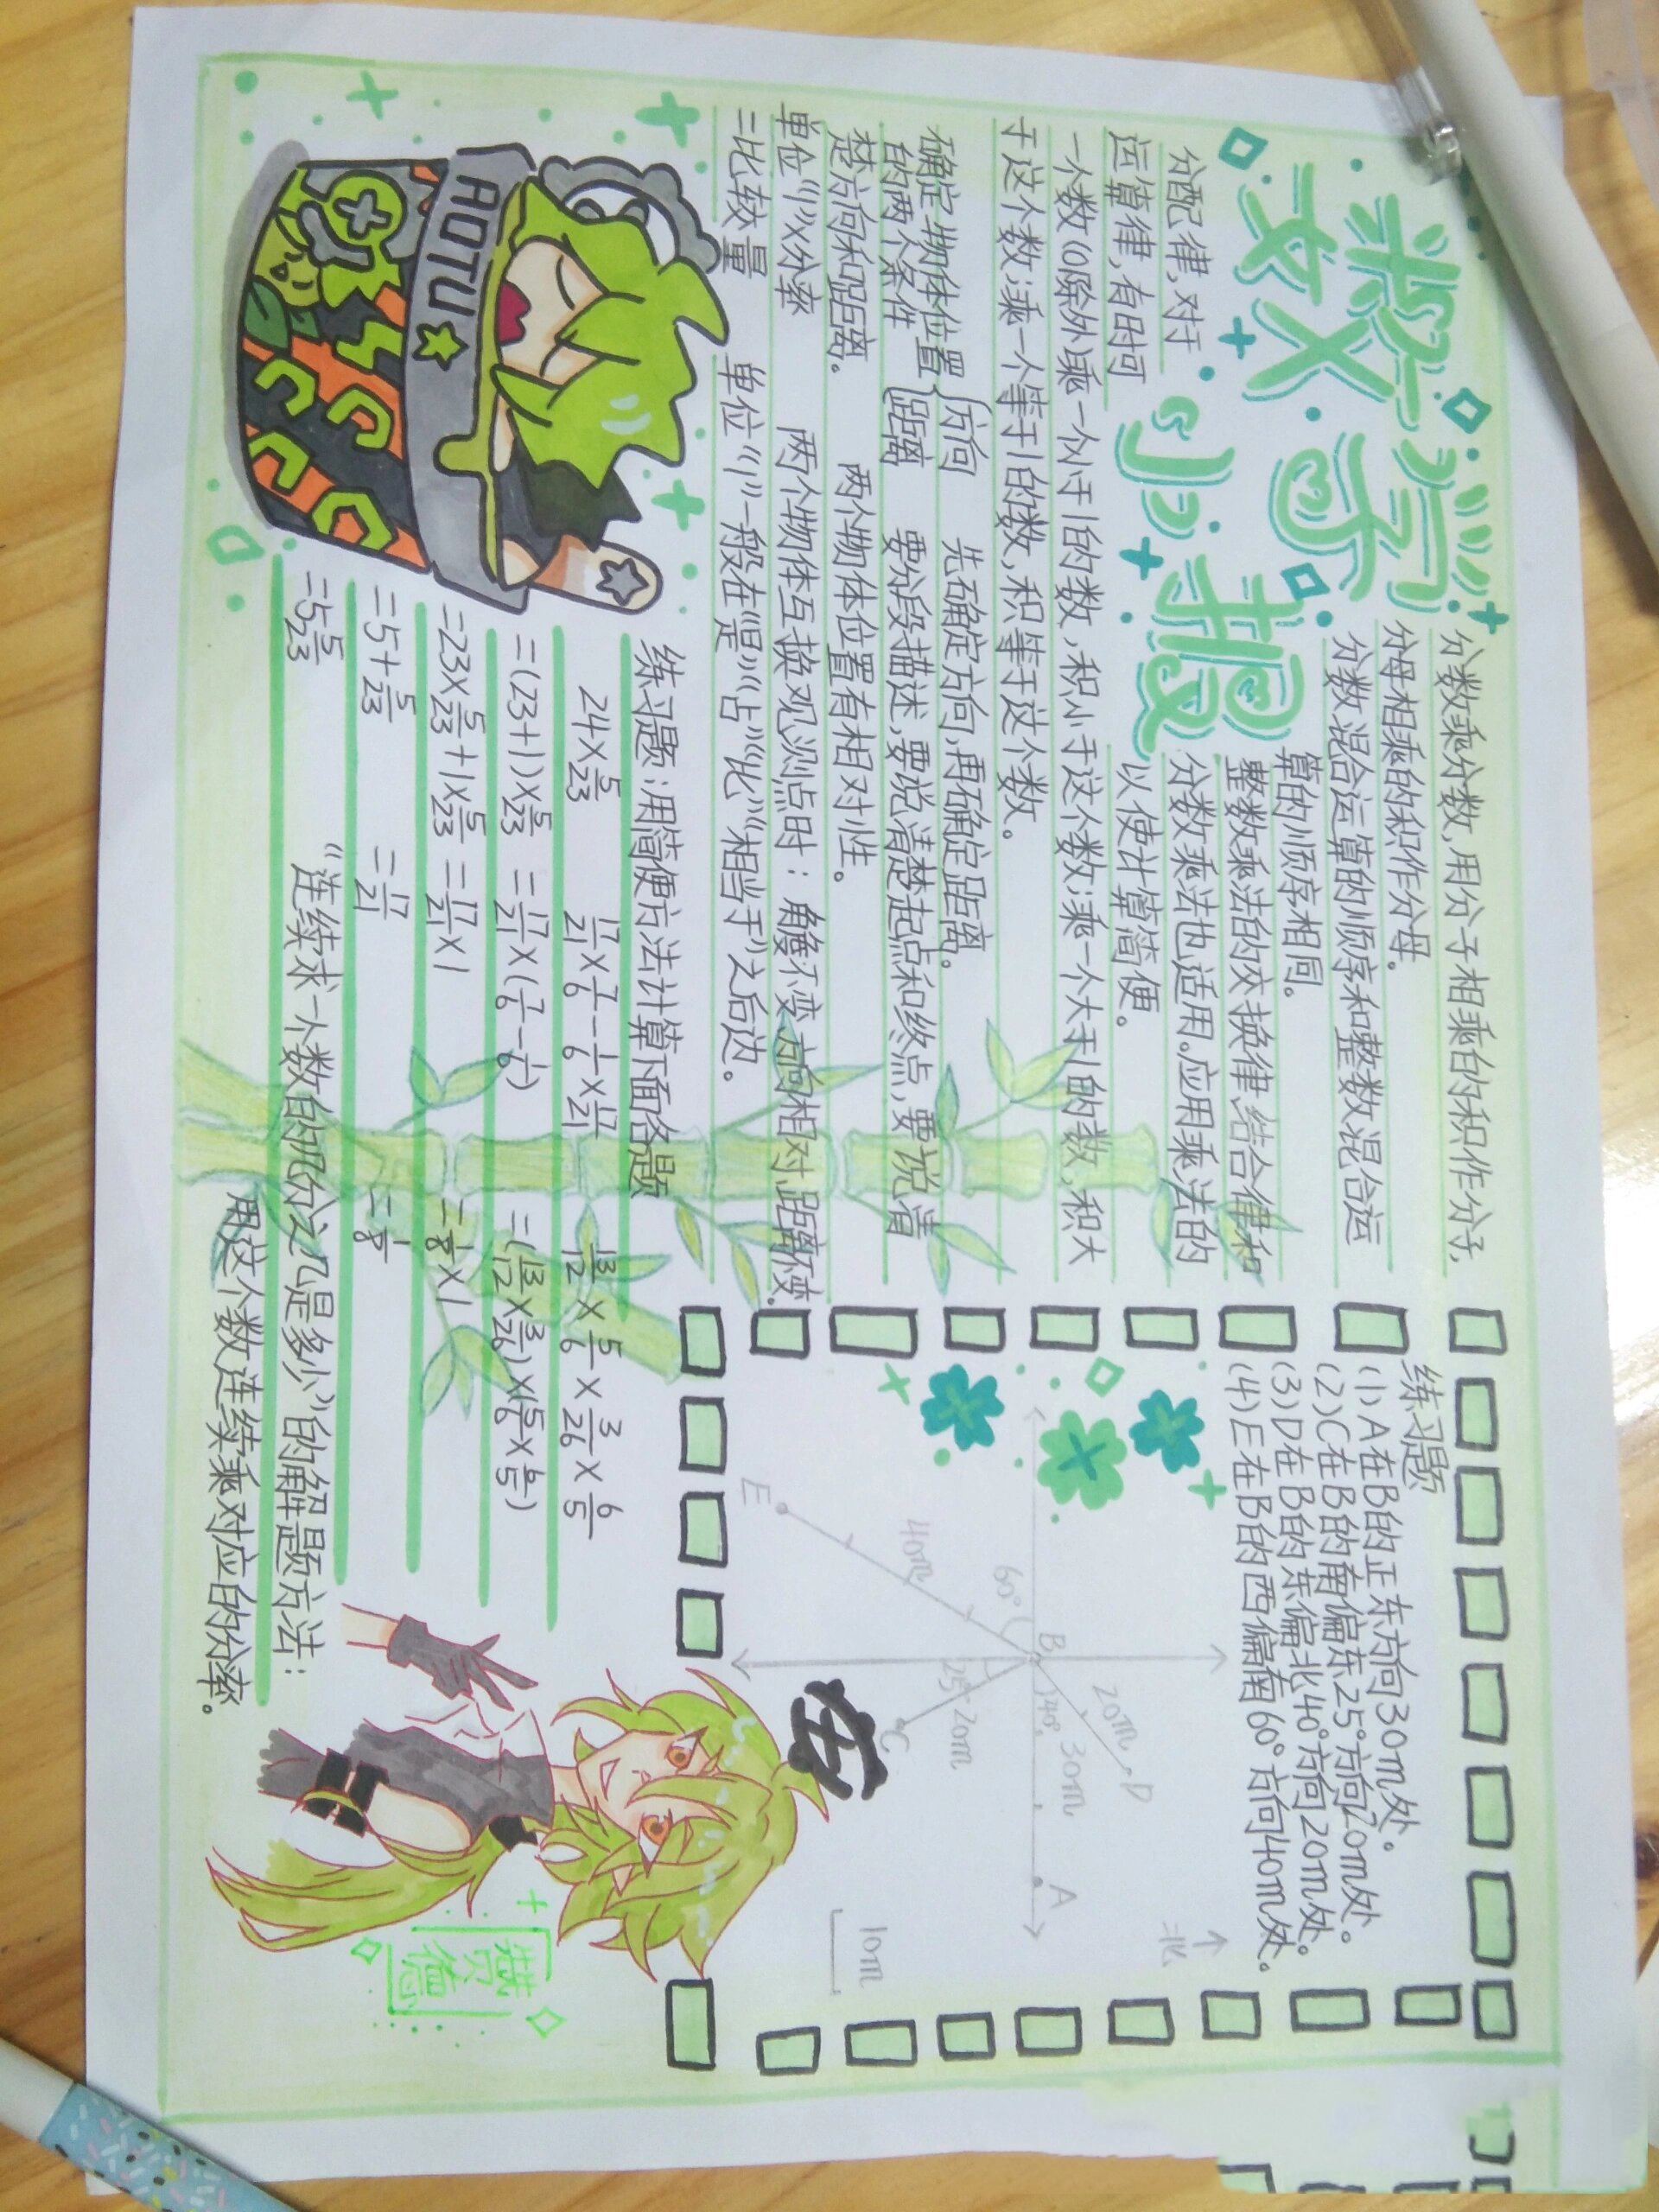 数学
数学
小报
分数乘分数,用分子相乘的积作分子,
分母相乘的积作分母。
分数混合运算的顺序和整数混合运
算的顺序相同。
整数乘法的交换律,结合律和
分配律,对于
分数乘法也适用。应用乘法的
运算律,有时可
以使计算简便。
一个数(0除外乘一个小于1的数,积小于这个数;乘一个大于1的数,积大
于这个数;乘一个等于1的数,积等于这个数。
确定物体位置{方向 先确定方向,再确定距离。
的两个条件 {距离 要分段描述,要说清楚起点和终点,要说清
楚方向和距离。 两个物体位置有相对性。
单位“1”×分率 两个物体互换观测点时:角度不变,方向相对,距离不变.
=比较量 单位“1”一般在“是”“占”“比”“相当于”之后边。
练习题
(1)A在B的正东方向30m处。
(2)C在B的南偏东25°方向20m处。
(3)D在B的东偏北40°方向20m处。
(4)E在B的西偏南60°方向40m处。
↑
北
D
20m
B 40° 30m A
60°
25° 20m
C
40m
E
10m
AOTU
练习题:用简便方法计算下面各题
24×5/23 17/21×7/6-1/6×17/21 13/12×5/6×3/26×6/5
=(23+1)×5/23 =17/21×(7/6-1/6) =(13/12×3/26)×(5/6×6/5)
=23×5/23+1×5/23 =17/21×1 =1/8×1
=5+5/23 =17/21 =1/8
=5 5/23
“连续求一个数的几分之几是多少”的解题方法:
用这个数连续乘对应的分率。
赞德